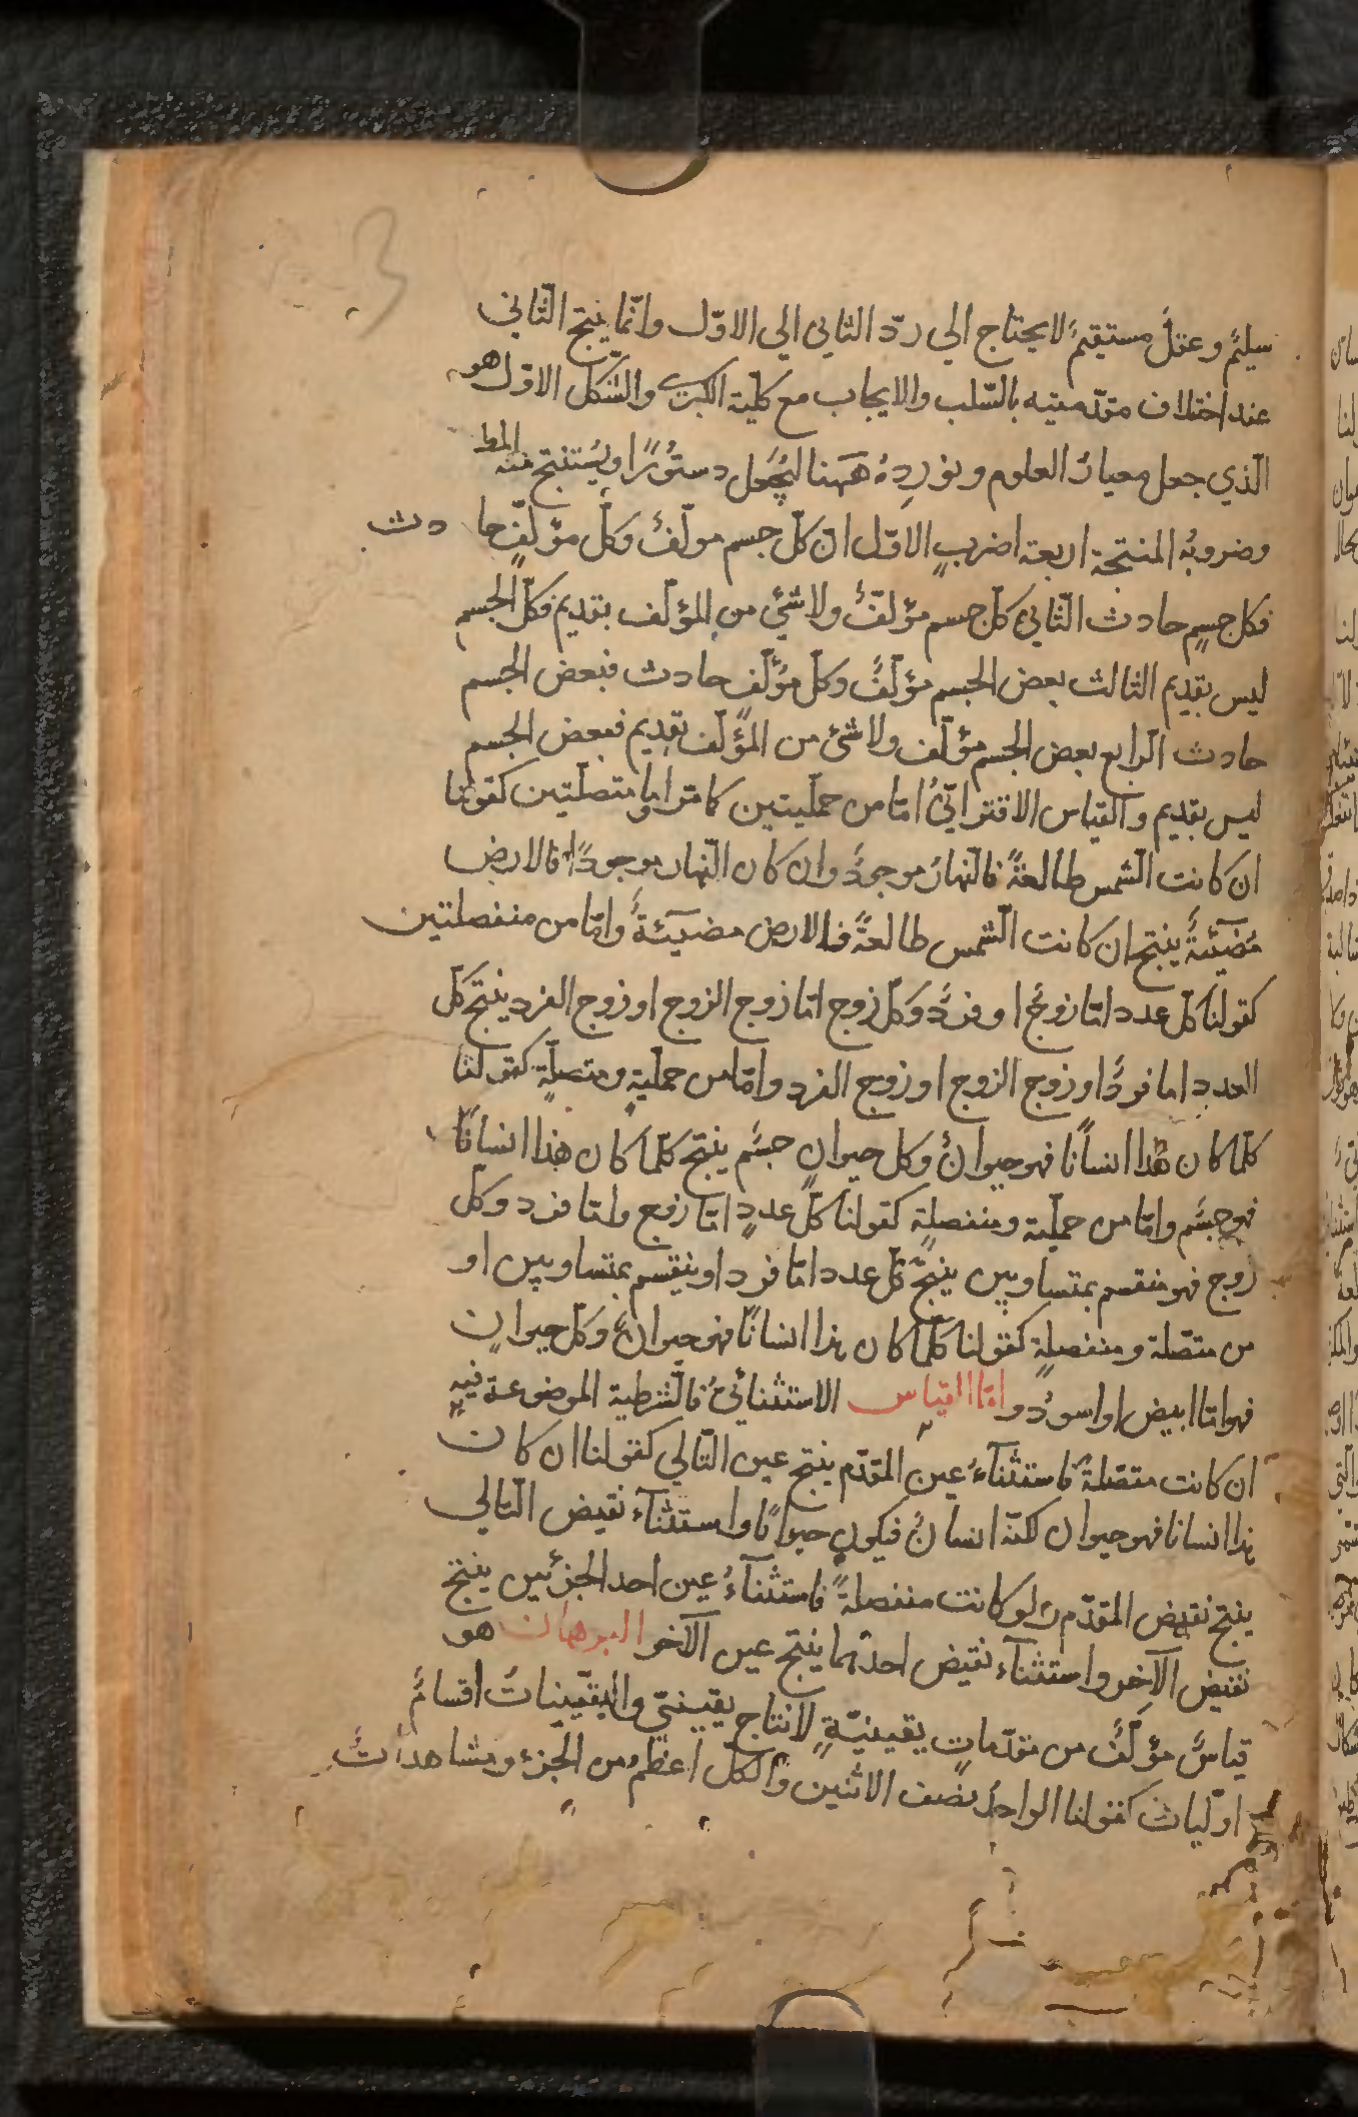 سليمٌ وعقلٌ مستقيمٌ لا يحتاج الي ردّ الثاني الي الاوّل وانّما ينتج الثّاني
عند اختلاف مقدّمتيه بالسّلب والايجاب مع كلّية الكبري والشّكل الاوّل هو
الّذي جعل معيارُ العلوم ونوردهُ ههنا ليُجعل دستورًا ويُستنتج منه المط
وضروبُه المنتجة اربعة اضربٍ الاوّل ان كلّ جسم مولّفٌ وكلّ مؤلّفٍ حادث
فكل جسمٍ حادث الثّاني كلّ جسم مؤلّفٌ ولا شئ من المؤلّف بقديم فكلّ الجسم
ليس بقديم الثالث بعض الجسم مؤلّفٌ وكلّ مؤلّفٍ حادث فبعض الجسم
حادث الرّابع بعض الجسم مؤلّف ولا شئ من المؤلّف بقديم فبعض الجسم
ليس بقديم والقياس الاقترانيّ امّا من حمليتين كما مرّ او متصلتين كقولنا
ان كانت الشّمس طالعةً فالنّهار موجودٌ وان كان النّهار موجودًا فالارض
مُضيئةٌ ينتج ان كانت الشّمس طالعةً فالارض مضيئةٌ وامّا من منفصلتين
كقولنا كلّ عدد امّا زوجٌ او فردٌ وكلّ زوج امّا زوج الزوج او زوج الفرد ينتج كلّ
العدد اما فردٌ او زوج الزوج او زوج الفرد وامّا من حمليةٍ ومتصلةٍ كقولنا
كلّما كان هذا انسانًا فهو حيوانٌ وكل حيوانٍ جسمٌ ينتج كلّما كان هذا انسانًا
فهو جسمٌ وامّا من حمليّة ومنفصلةٍ كقولنا كلّ عددٍ امّا زوج وامّا فرد وكلّ
زوج فهو منقسم بمتساويين ينتج كلّ عدد امّا فرد او ينقسم بمتساويين او
من متصّلة ومنفصلةٍ كقولنا كلّما كان هذا انسانًا فهو حيوانٌ وكلّ حيوانٍ
فهو امّا ابيض او اسود وامّا القياس الاستثنائيُ فالشّرطية الموضوعة فيه
ان كانت متصّلةً فاستثنآءُ عين المقدّم ينتج عين التّالي كقولنا ان كان
هذا انسانا فهو حيوان لكنّه انسانٌ فيكون حيوانًا واستثنآء نقيض التّالي
ينتج نقيض المقدّم ولو كانت منفصلةً فاستثنآءُ عين احد الجزئين ينتج
نقيض الآخر واستثنآء نقيض احدهما ينتج عين الآخر البرهان هو
قياسٌ مؤلّفٌ من مقدّماتٍ يقينيّةٍ لانتاج يقينيّ واليقينياتُ اقسامٌ
اوّلياتٌ كقولنا الواحدُ نصف الاثنين والكلّ اعظم من الجزء ومشاهداتٌ